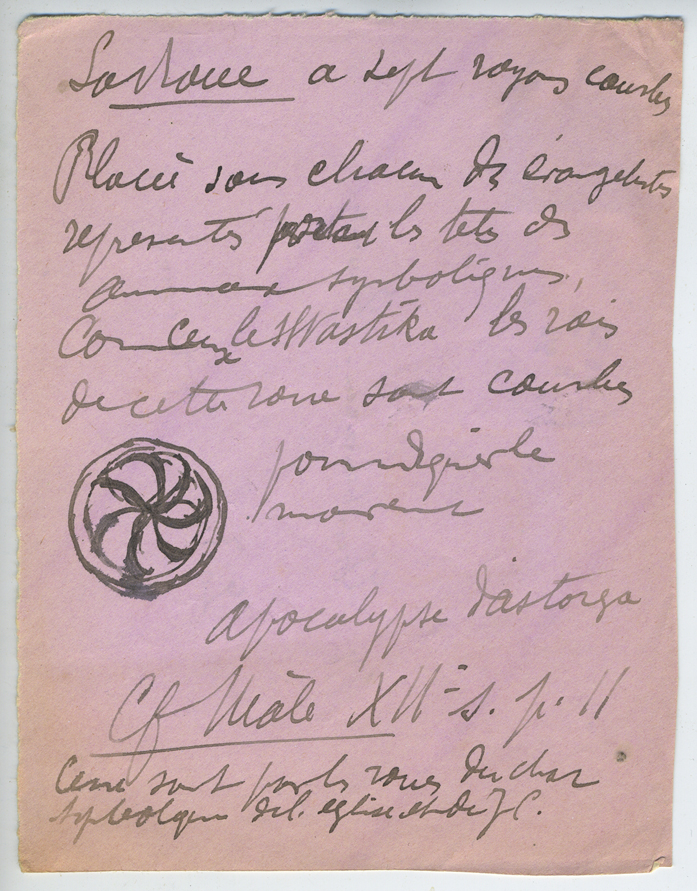 La Roue a sept rayons courbes
Placée sous chacun des évangelistes
representés portant les tetes des
animaux symboliques,
Comme ceux le SWastika les rais
de cette roue sont courbes
pour indiquer le
mouvement
Apocalypse d'astorga
Cf Mâle XIIe s. p. 11
Ce ne sont pas les roues du char
symbolique de l'eglise et de J C.